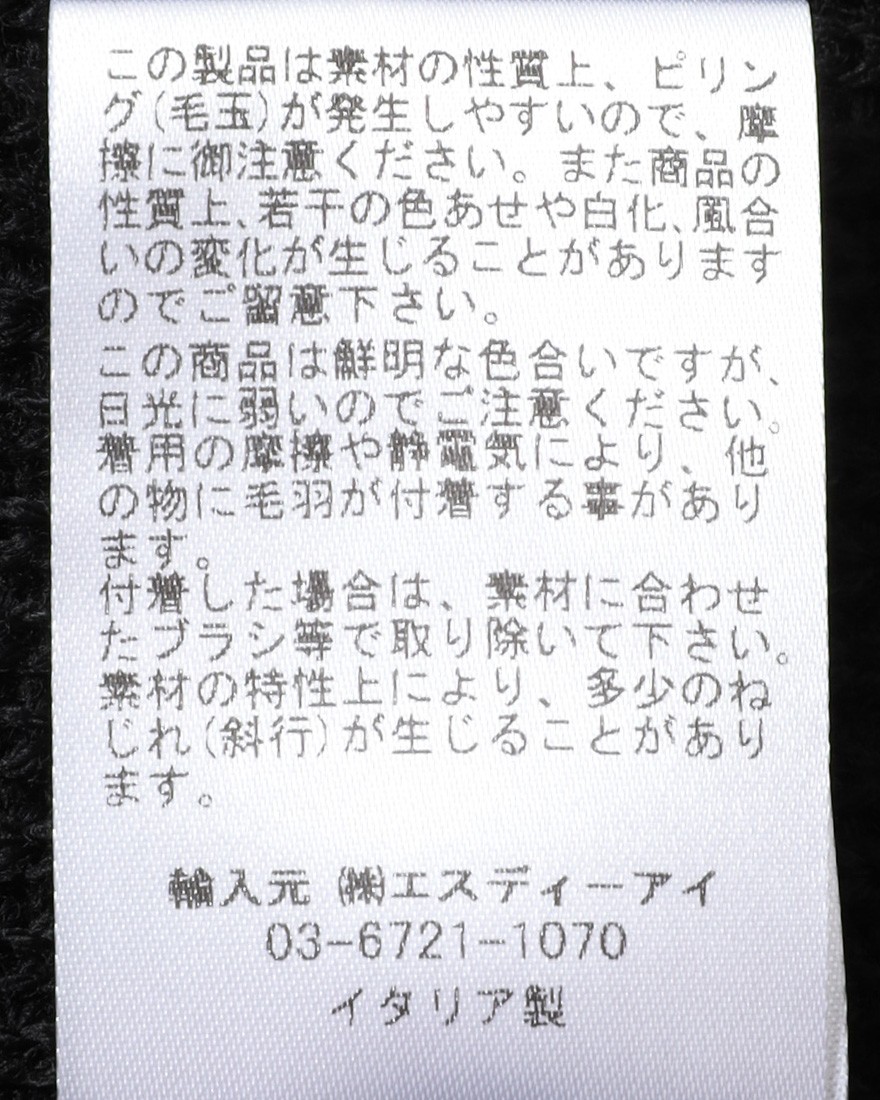 この製品は素材の性質上、ピリン
グ(毛玉)が発生しやすいので、摩
擦に御注意ください。また商品の
性質上、若干の色あせや白化、風合
いの変化が生じることがあります
のでご留意下さい。
この商品は鮮明な色合いですが、
日光に弱いのでご注意ください。
着用の摩擦や静電気により、他
の物に毛羽が付着する事があり
ます。
付着した場合は、素材に合わせ
たブラシ等で取り除いて下さい。
素材の特性上により、多少のね
じれ(斜行)が生じることがあり
ます。
輸入元 ㈱エスディーアイ
03-6721-1070
イタリア製